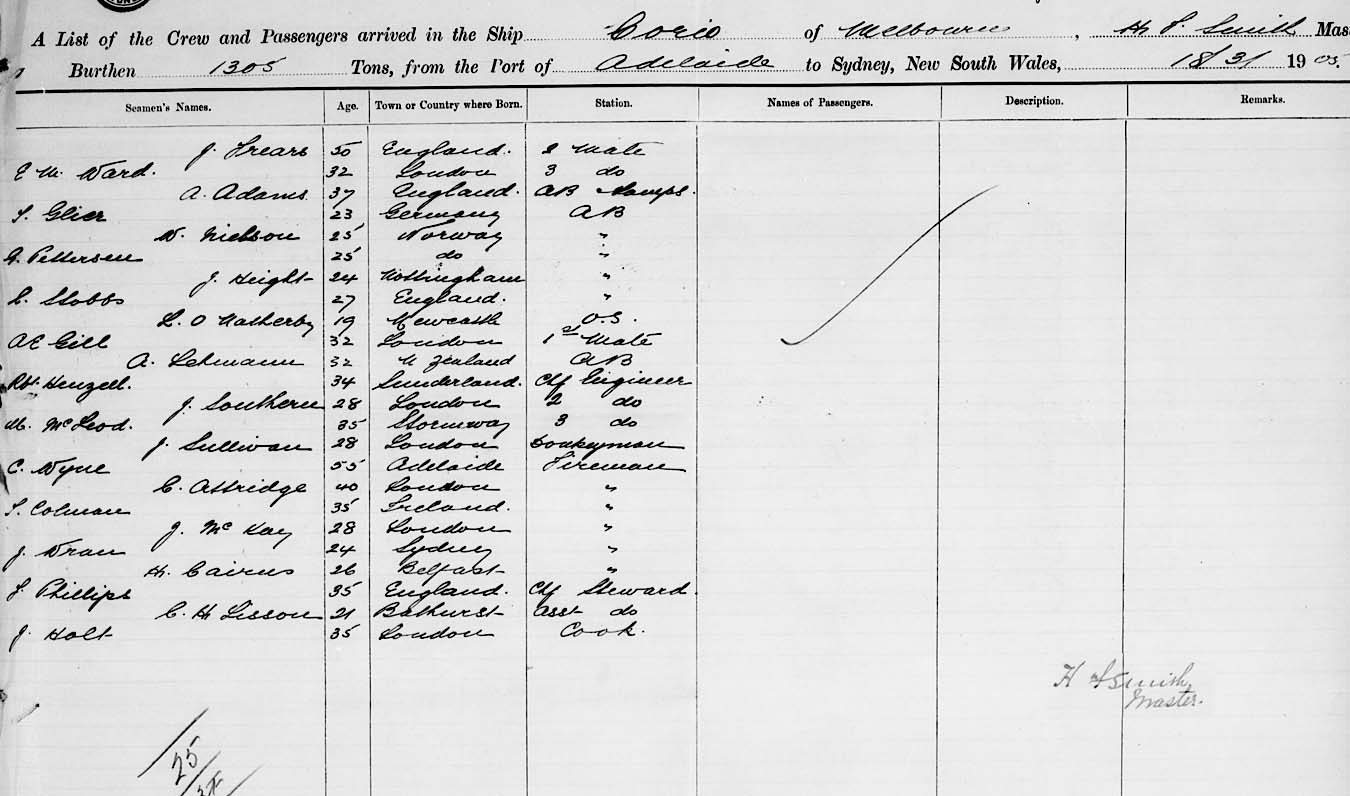 A List of the Crew and Passengers arrived in the Ship Corio of Melbourne, H S Smith Mas
Burthen 1305 Tons, from the Port of Adelaide to Sydney, New South Wales, 1905.
Seamen's Names. Age. Town or Country where Born. Station. Names of Passengers. Description. Remarks.
J. Frears 50 England. 2 Mate
E M. Ward. 32 London 3 do
A. Adams 37 England. AB Lamps.
23 Germany AB
W. Nielson 25 Norway "
Pettersen 25 do "
J. Height 24 Nottingham "
Stobbs 27 England. "
L. O 19 Newcastle O.S.
AE Gill 32 London 1st Mate
A. Lehmann 32 N Zealand AB
Rbt. Henzell. 34 Sunderland. Chf Engineer
J. Southern 28 London 2 do
M. McLeod. 35 Stornway 3 do
J. Sullivan 28 London Donkeyman
C. Wyne 55 Adelaide Fireman
C. Attridge 40 London "
Colman 35 Ireland. "
J. McKay 28 London "
J. Wran 24 Sydney "
H. Cairns 26 Belfast "
Phillips 35 England. Chf Steward.
C. H. Lisson 21 Bathurst Asst do
J. Holt 35 London Cook.
H S Smith
Master.
25